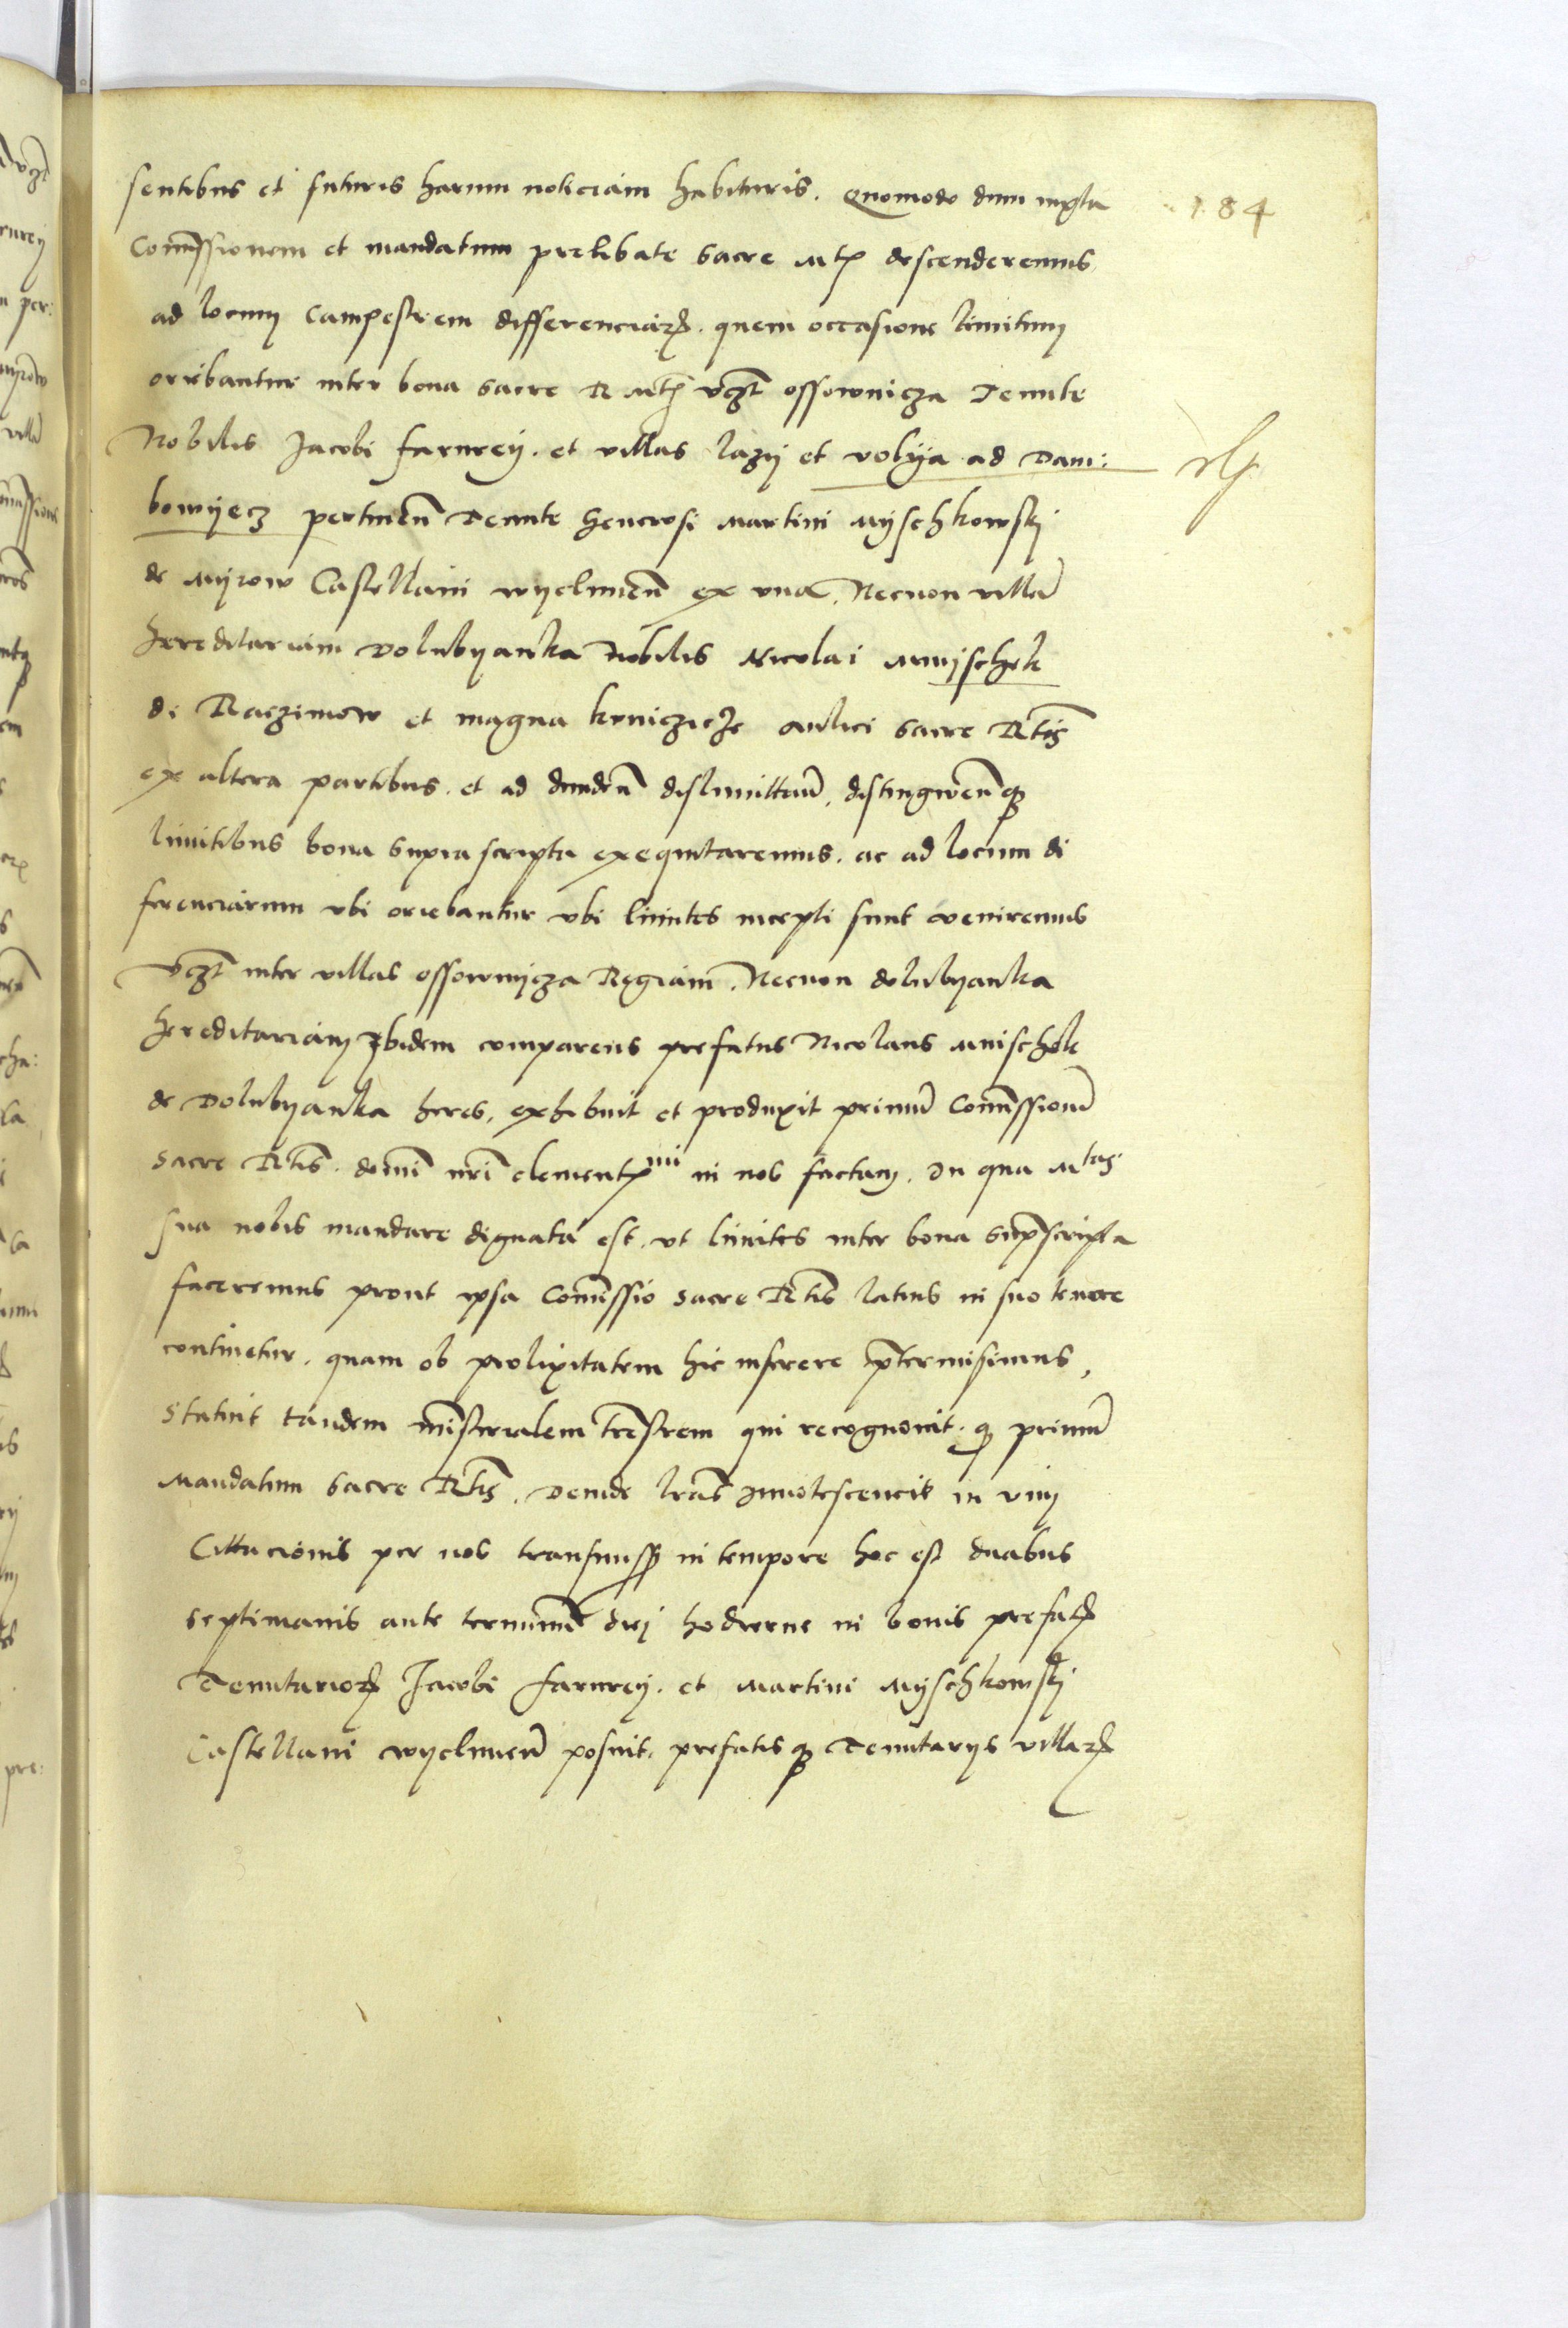 sentibus et futuris harum noticiam habituris. Quomodo dum iuxta
184
Comissionem et mandatum prelibate Sacre Mtis descenderemus
ad locum Campestrem differenciarum quem occasione limitum
oriebantur inter bona Sacre R Mtis vczt Ossownicza Tenute
Nobilis Jacobi farurey. et villas lazy et volya ad Dam:
bowyecz pertinen Tenute Generosi Martini Myschkowsky
de Myrow Castellani wyelunen ex una. Necnon villa
hereditariam Dolubyanka Nobilis Nicolai Mnyschek
de Raczimow et magna kunczicze aulici Sacre Rtis
ex altera partibus. et ad dislimittand, distingwenq
limitibus bona supra scripta exequitaremus. ac ad locum di
ferenciarum vbi oriebantur vbi limites incepti sunt veniremus
vczt inter villas Ossownycza Regiam. Necnon dolubyanka
hereditariam Ibidem comparens prefatus Nicolaus Mnischek
de Dolubyanka heres, exhibuit et produxit primu Comissione
Sacre Rtis. domi nri clementmi in nos factam. In qua Mtas
sua nobis mandare dignata est. vt limites inter bona suprscripta
faceremus prout ipsa Comissio Sacre Rtis latius in suo tenore
continetur. quam ob prolixitatem hic inserere ptermisimus,
Statuit tandem misterialem trestrem qui recognovit. q primu
Mandatum Sacre Rtis. Deinde lras Innotescencie in vim
Cittacionis per nos transmiss in tempore hoc est duabus
septimanis ante terminu diei hodierne in bonis prefatorum
Tenutariorum Jacobi farurey. et Martini Myschkowsky
Castellani wyelunen posuit. prefatisq Tenutarys villarum